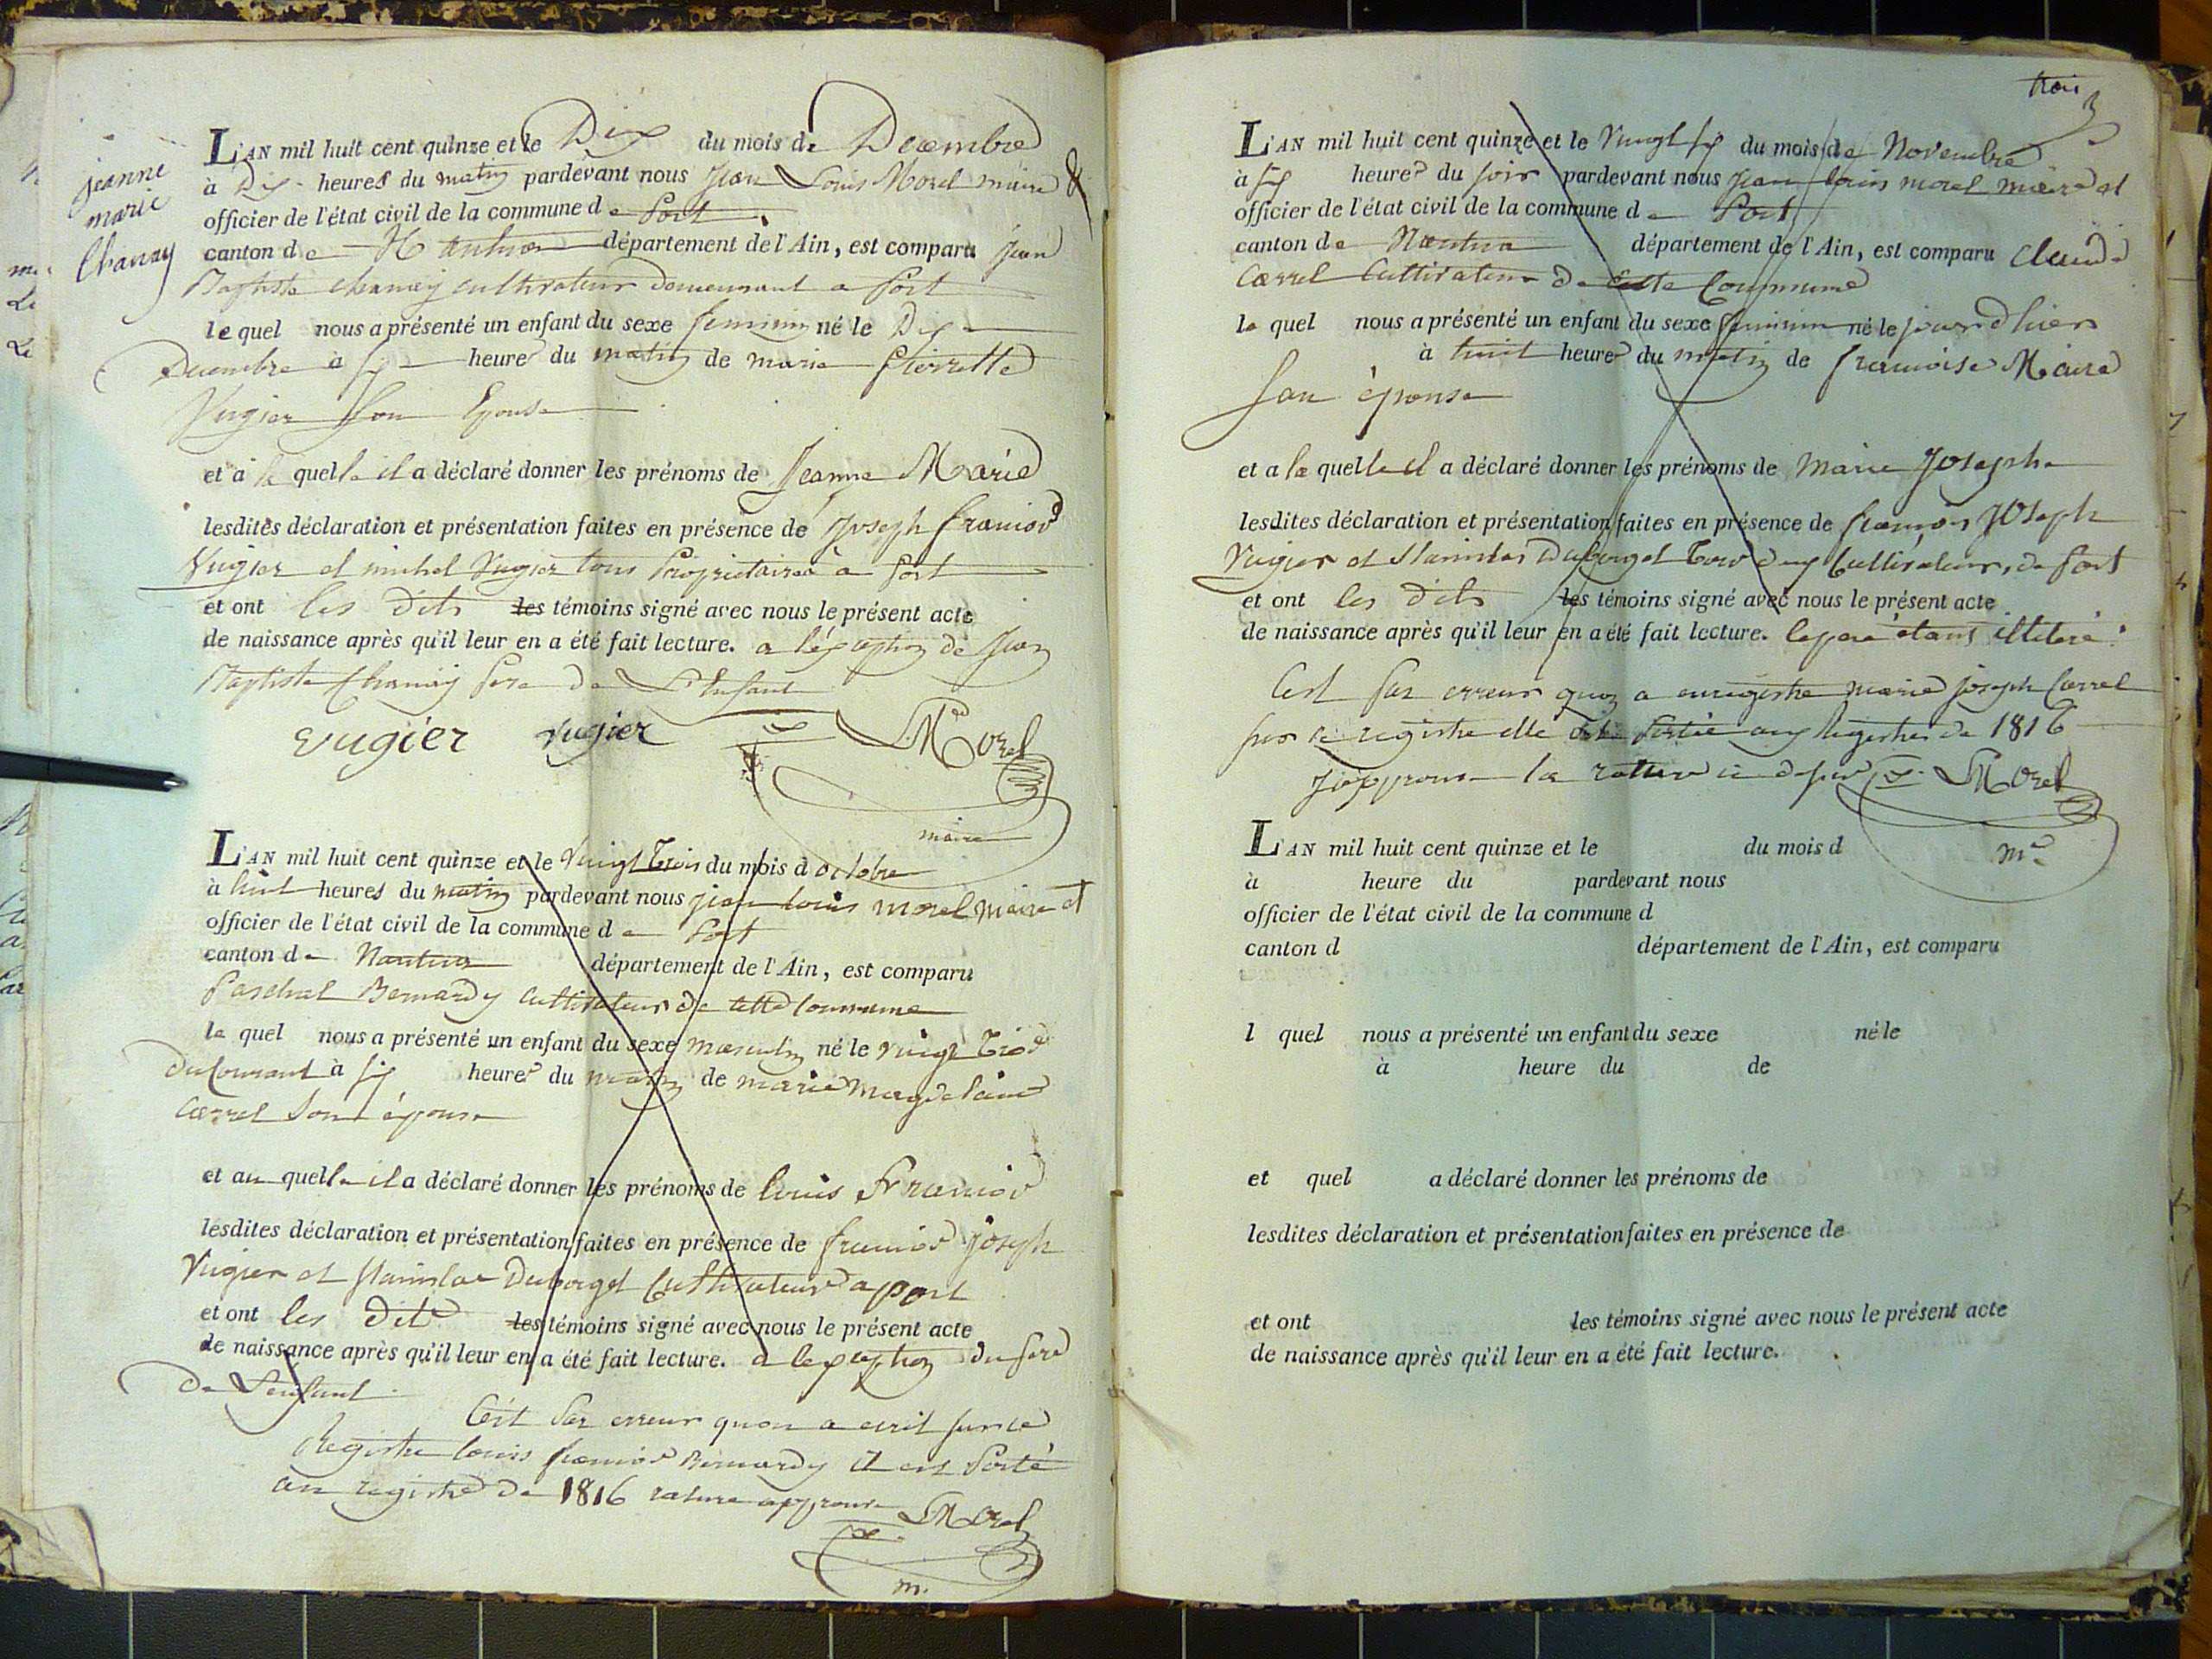 jeanne
marie
Chanay
L'AN mil huit cent quinze et le Dix du mois de Decembre
à Dix heures du matin pardevant nous Jean Louis Morel maire &
officier de l'état civil de la commune de Port
canton de Nantua département de l'Ain, est comparu Jean
Baptiste chanay cultivateur demeurant a Port
le quel nous a présenté un enfant du sexe feminin né le Dix
Decembre à six heures du matin de marie Pierrette
Vugier son Epouse
et a la quelle il a déclaré donner les prénoms de Jeanne Marie
lesdites déclaration et présentation faites en présence de Joseph francois
Vugier et michel Vugier tous Proprietaires a Port
et ont les dits les témoins signé avec nous le présent acte
de naissance après qu'il leur en a été fait lecture. a l'éxception de Jean
Baptiste Chanay Pere de L'Enfant
Vugier Vugier Morel
maire
L'AN mil huit cent quinze et le Vingt Trois du mois d octobre
à huit heures du matin pardevant nous jean louis morel maire et
officier de l'état civil de la commune de Port
canton de Nantua département de l'Ain, est comparu
Paschal Bernardy cultivateur de cette commune
le quel nous a présenté un enfant du sexe masculin né le vingt trois
du Courant à six heures du matin de marie magdelaine
Carrel son épouse
et au quelle il a déclaré donner les prénoms de louis francois
lesdites déclaration et présentation faites en présence de francois joseph
Vugier et Stanislas Duborget Cultivateurs a port
et ont les Dits les témoins signé avec nous le présent acte
de naissance après qu'il leur en a été fait lecture. a lexception du pere
De L'enfant
C'est Par erreur quon a ecrit sur ce
Registre louis francois Bernardy il est Porté
au registre de 1816 rature approuvé Morel
m.
trois
3
L'AN mil huit cent quinze et le Vingt six du mois de Novembre
à six heures du soir pardevant nous jean louis morel maire et
officier de l'état civil de la commune de Port
canton de Nantua département de l'Ain, est comparu Claude
Carrel Cultivateur De cette Commune
le quel nous a présenté un enfant du sexe feminin né le jour d'hier
à huit heures du matin de francoise Maire
son épouse
et a la quelle il a déclaré donner les prénoms de Marie Josephe
lesdites déclaration et présentation faites en présence de françois Joseph
Vugier et Stanislas Duborget Tous deux Cultivateurs, de Port
et ont les dits les témoins signé avec nous le présent acte
de naissance après qu'il leur en a été fait lecture. le pere étant illiteré
Cest par erreur quon a enregistre marie joseph Carrel
sur ce registre elle est Portée aux Registres de 1816
J'approuve la rature ci dessus Morel
mre
L'AN mil huit cent quinze et le du mois d
à heure du pardevant nous
officier de l'état civil de la commune d
canton d département de l'Ain, est comparu
l quel nous a présenté un enfant du sexe né le
à heure du de
et quel a déclaré donner les prénoms de
lesdites déclaration et présentation faites en présence de
et ont les témoins signé avec nous le présent acte
de naissance après qu'il leur en a été fait lecture.